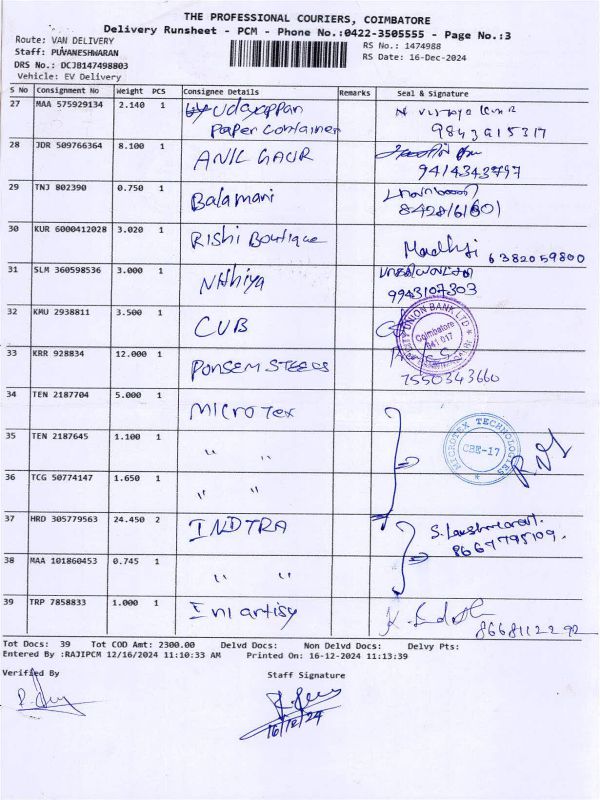 THE PROFESSIONAL COURIERS, COIMBATORE
Delivery Runsheet - PCM - Phone No.:0422-3505555 - Page No.:3
Route: VAN DELIVERY
RS No.: 1474988
Staff: PUVANESHWARAN
RS Date: 16-Dec-2024
DRS No.: DCJB147498803
Vehicle: EV Delivery
S No Consignment No Weight PCS Consignee Details Remarks Seal & Signature
27 MAA 575929134 2.140 1 Udayappan
Paper Container
9843915317
28 JDR 509766364 8.100 1 ANIL GAUR
9414343797
29 TNJ 802390 0.750 1 Balamani
8428161801
30 KUR 6000412028 3.020 1 Rishi Boutique
6382059800
31 SLM 360598536 3.000 1 Nithiya
9943107303
32 KMU 2938811 3.500 1 CUB
CITY UNION BANK LTD
Coimbatore
641 017
33 KRR 928834 12.000 1 PONSEM STEELS
7550343660
34 TEN 2187704 5.000 1 Microtex
35 TEN 2187645 1.100 1 " "
MICROTEX TECHNOLOGIES
CBE-17
36 TCG 50774147 1.650 1 " "
37 HRD 305779563 24.450 2 INDTRA
8667795109
38 MAA 101860453 0.745 1 " "
39 TRP 7858833 1.000 1 Ini artisy
8668112292
Tot Docs: 39 Tot COD Amt: 2300.00 Delvd Docs: Non Delvd Docs: Delvy Pts:
Entered By :RAJIPCM 12/16/2024 11:10:33 AM Printed On: 16-12-2024 11:13:39
Verified By
Staff Signature
16/12/24